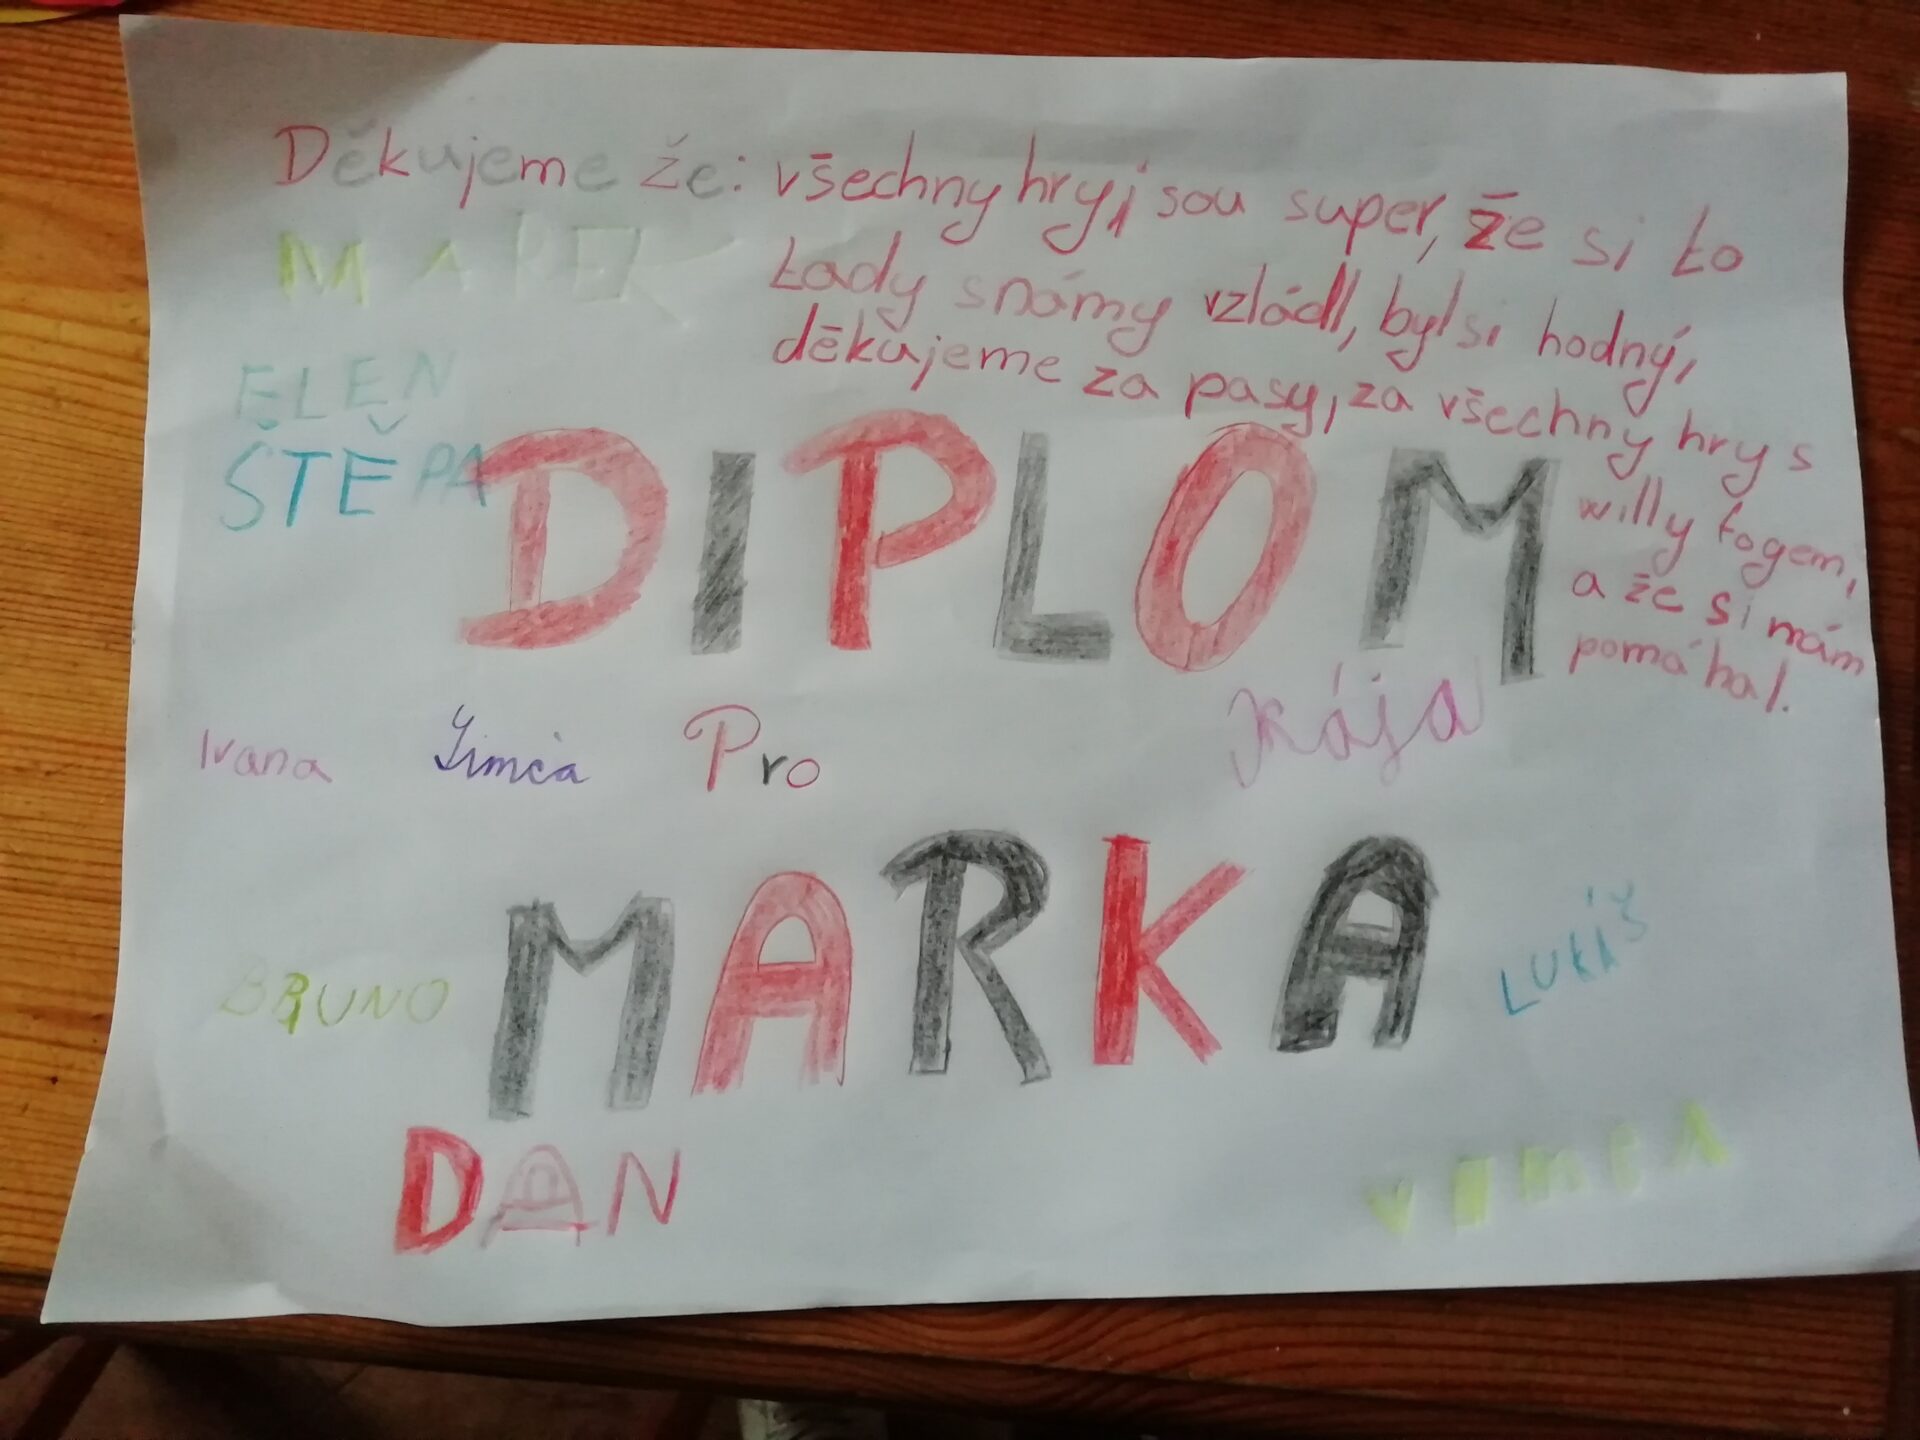 Děkujeme že: všechny hry jsou super, že si to
tady snámy vzládl, byl si hodný,
děkujeme za pasy, za všechny hry s
willy fogem,
a že si mám
pomáhal.
MAREK
ELEN
ŠTĚPA
DIPLOM
Ivana
Pro
Kája
MARKA
BRUNO
LUKÁŠ
DAN